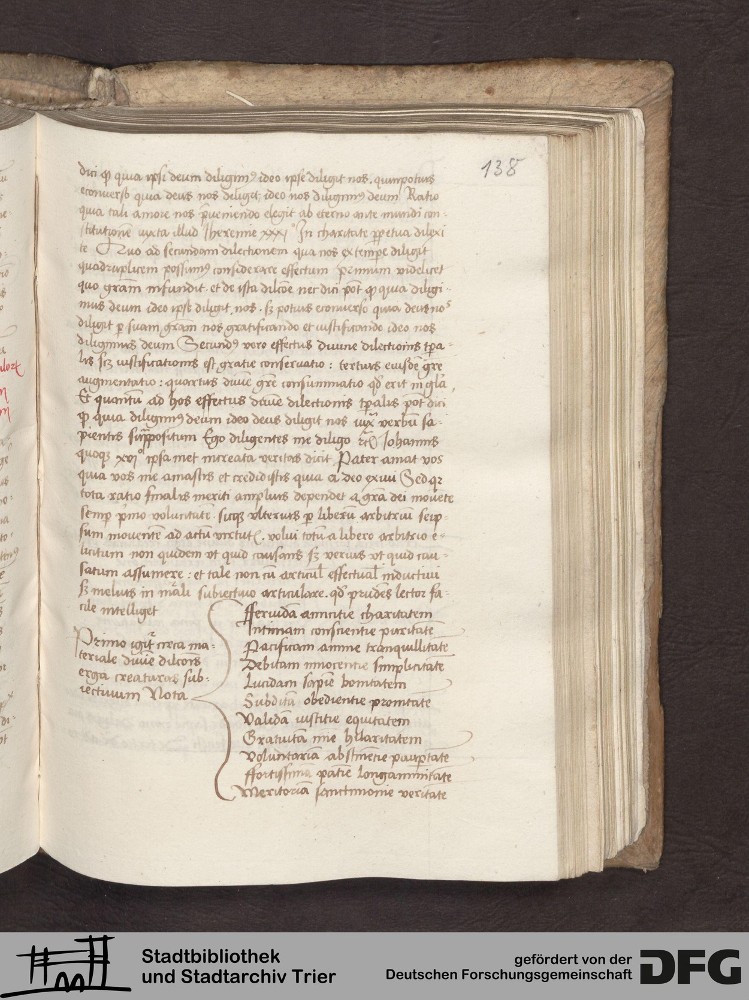 138
dici q quia ipsi deum diligimus ideo ipse diligit nos. quinpotius
econuerso quia deus nos diligit, ideo nos diligimus deum Ratio
quia tali amore nos preueniendo elegit ab eterno ante mundi con-
stitutionem iuxta illud Iheremie xxxi In charitate perpetua dilexi
te Quo ad secundam dilectionem qua nos ex tempore diligit
quadruplicem possumus considerare effectum primum videlicet
quo gram infundit. et de ista dilcone nec dici pot q quia diligi-
mus deum ideo ipse diligit nos. sz potius econuerso quia deus nos
diligit per suam gram nos gratificando et iustificando ideo nos
diligimus deum Secundus vero effectus diuine dilectionis tpa-
lis scz iustificationis est gratie conseruatio: tertius eiusde gre
augmentatio: quartus diuine gre consummatio qd erit in gla,
Et quantum ad hos effectus diuine dilectionis tpalis pot dici
q quia diligimus deum ideo deus diligit nos iux verbum sa-
pientis suppositum Ego diligentes me diligo Johannis
quoqz xvi ipsa met increata veritas dicit Pater amat vos
quia vos me amastis et credidistis quia a deo exiui Sed qz
tota ratio finalis meriti amplius dependet a gra dei mouete
semp primo voluntate. sicqz vlterius p liberum arbitrium seip-
sum mouente ad actum virtut. volui totum a libero arbitrio e-
licitum non quidem vt quid causans sz verius vt quid cau-
satum assumere: et tale non cum articul effectual inductiui
sz melius in mali subiectiuo articulare. qd prudens lector fa-
cile intelliget
Primo igit circa ma-
teriale diuine dilcois
erga creaturas sub-
iectiuum Nota
fferuida amicitie charitatem
Intimam conscientie puritate
Pacificam anime tranquillitate
Debitam innocentie simplicitate
Lucidam sapie bonitatem
Subdita obedientie promtitate
Valida iustitie equitatem
Gratuita hilaritatem
Voluntaria abstinetie paupertate
ffortissima patie longanimitate
Meritoria sanctimonie veritate
Stadtbibliothek
und Stadtarchiv Trier
gefördert von der
Deutschen Forschungsgemeinschaft
DFG